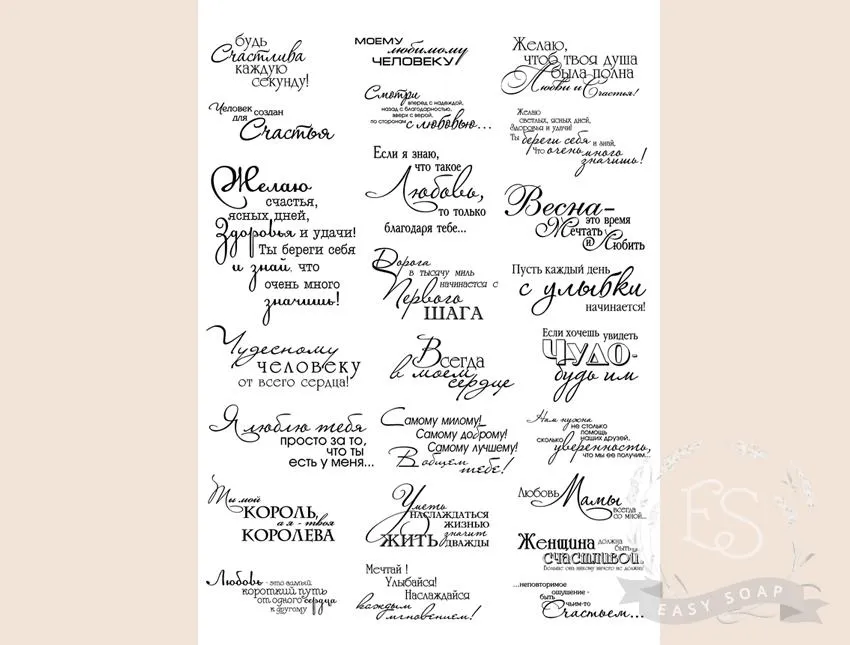 будь
Счастлива
каждую
секунду!
Человек
для
создан
Счастья
Желаю
счастья,
ясных дней,
Здоровья и удачи!
Ты береги себя
и знай, что
очень много
значишь!
Чудесному
человеку
от всего сердца!
Я люблю тебя
просто за то,
что ты
есть у меня...
Ты мой
КОРОЛЬ,
а я - твоя
КОРОЛЕВА
Любовь - это самый
короткий путь
от одного сердца
к другому
МОЕМУ
любимому
ЧЕЛОВЕКУ
Смотри
вперед с надеждой,
назад с благодарностью,
вверх с верой,
по сторонам с любовью...
Если я знаю,
что такое
Любовь,
то только
благодаря тебе...
Дорога
в тысячу миль
начинается с
Первого
ШАГА
Всегда
в моем
сердце
Самому милому!
Самому доброму!
Самому лучшему!
В общем
тебе!
Уметь
НАСЛАЖДАТЬСЯ
ЖИЗНЬЮ
значит
ЖИТЬ ДВАЖДЫ
Мечтай !
Улыбайся!
Наслаждайся
каждым
мгновением!
Желаю,
чтоб твоя душа
была полна
Любви и Счастья!
Желаю
светлых, ясных дней,
Здоровья и удачи!
Ты береги себя и знай,
Что очень много
значишь!
Весна-
это время
Мечтать
и Любить
Пусть каждый день
с улыбки
начинается!
Если хочешь увидеть
ЧУДО-
будь им
Нам нужна
не столько
помощь
наших друзей,
сколько
уверенность,
что мы ее получим...
Любовь Мамы
всегда
со мной...
Женщина должна
быть
счастливой.
Больше она никому ничего не должна!
...неповторимое
ощущение -
быть
чьим-то
Счастьем...
ES
EASY SOAP